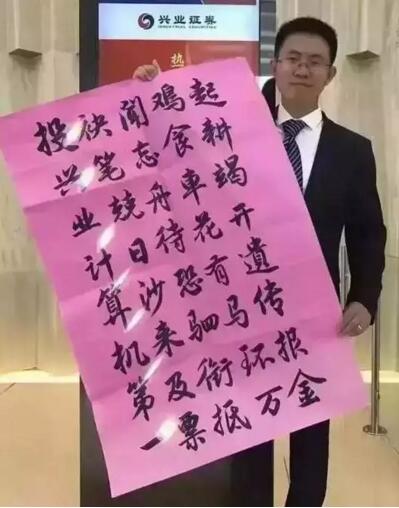 兴业证券
INDUSTRIAL SECURITIES
热
投袂闻鸡起
兴笔忘食耕
业绕舟車竭
计日待花开
算沙恐有遗
机来驷马传
第及衔环报
一票抵万金